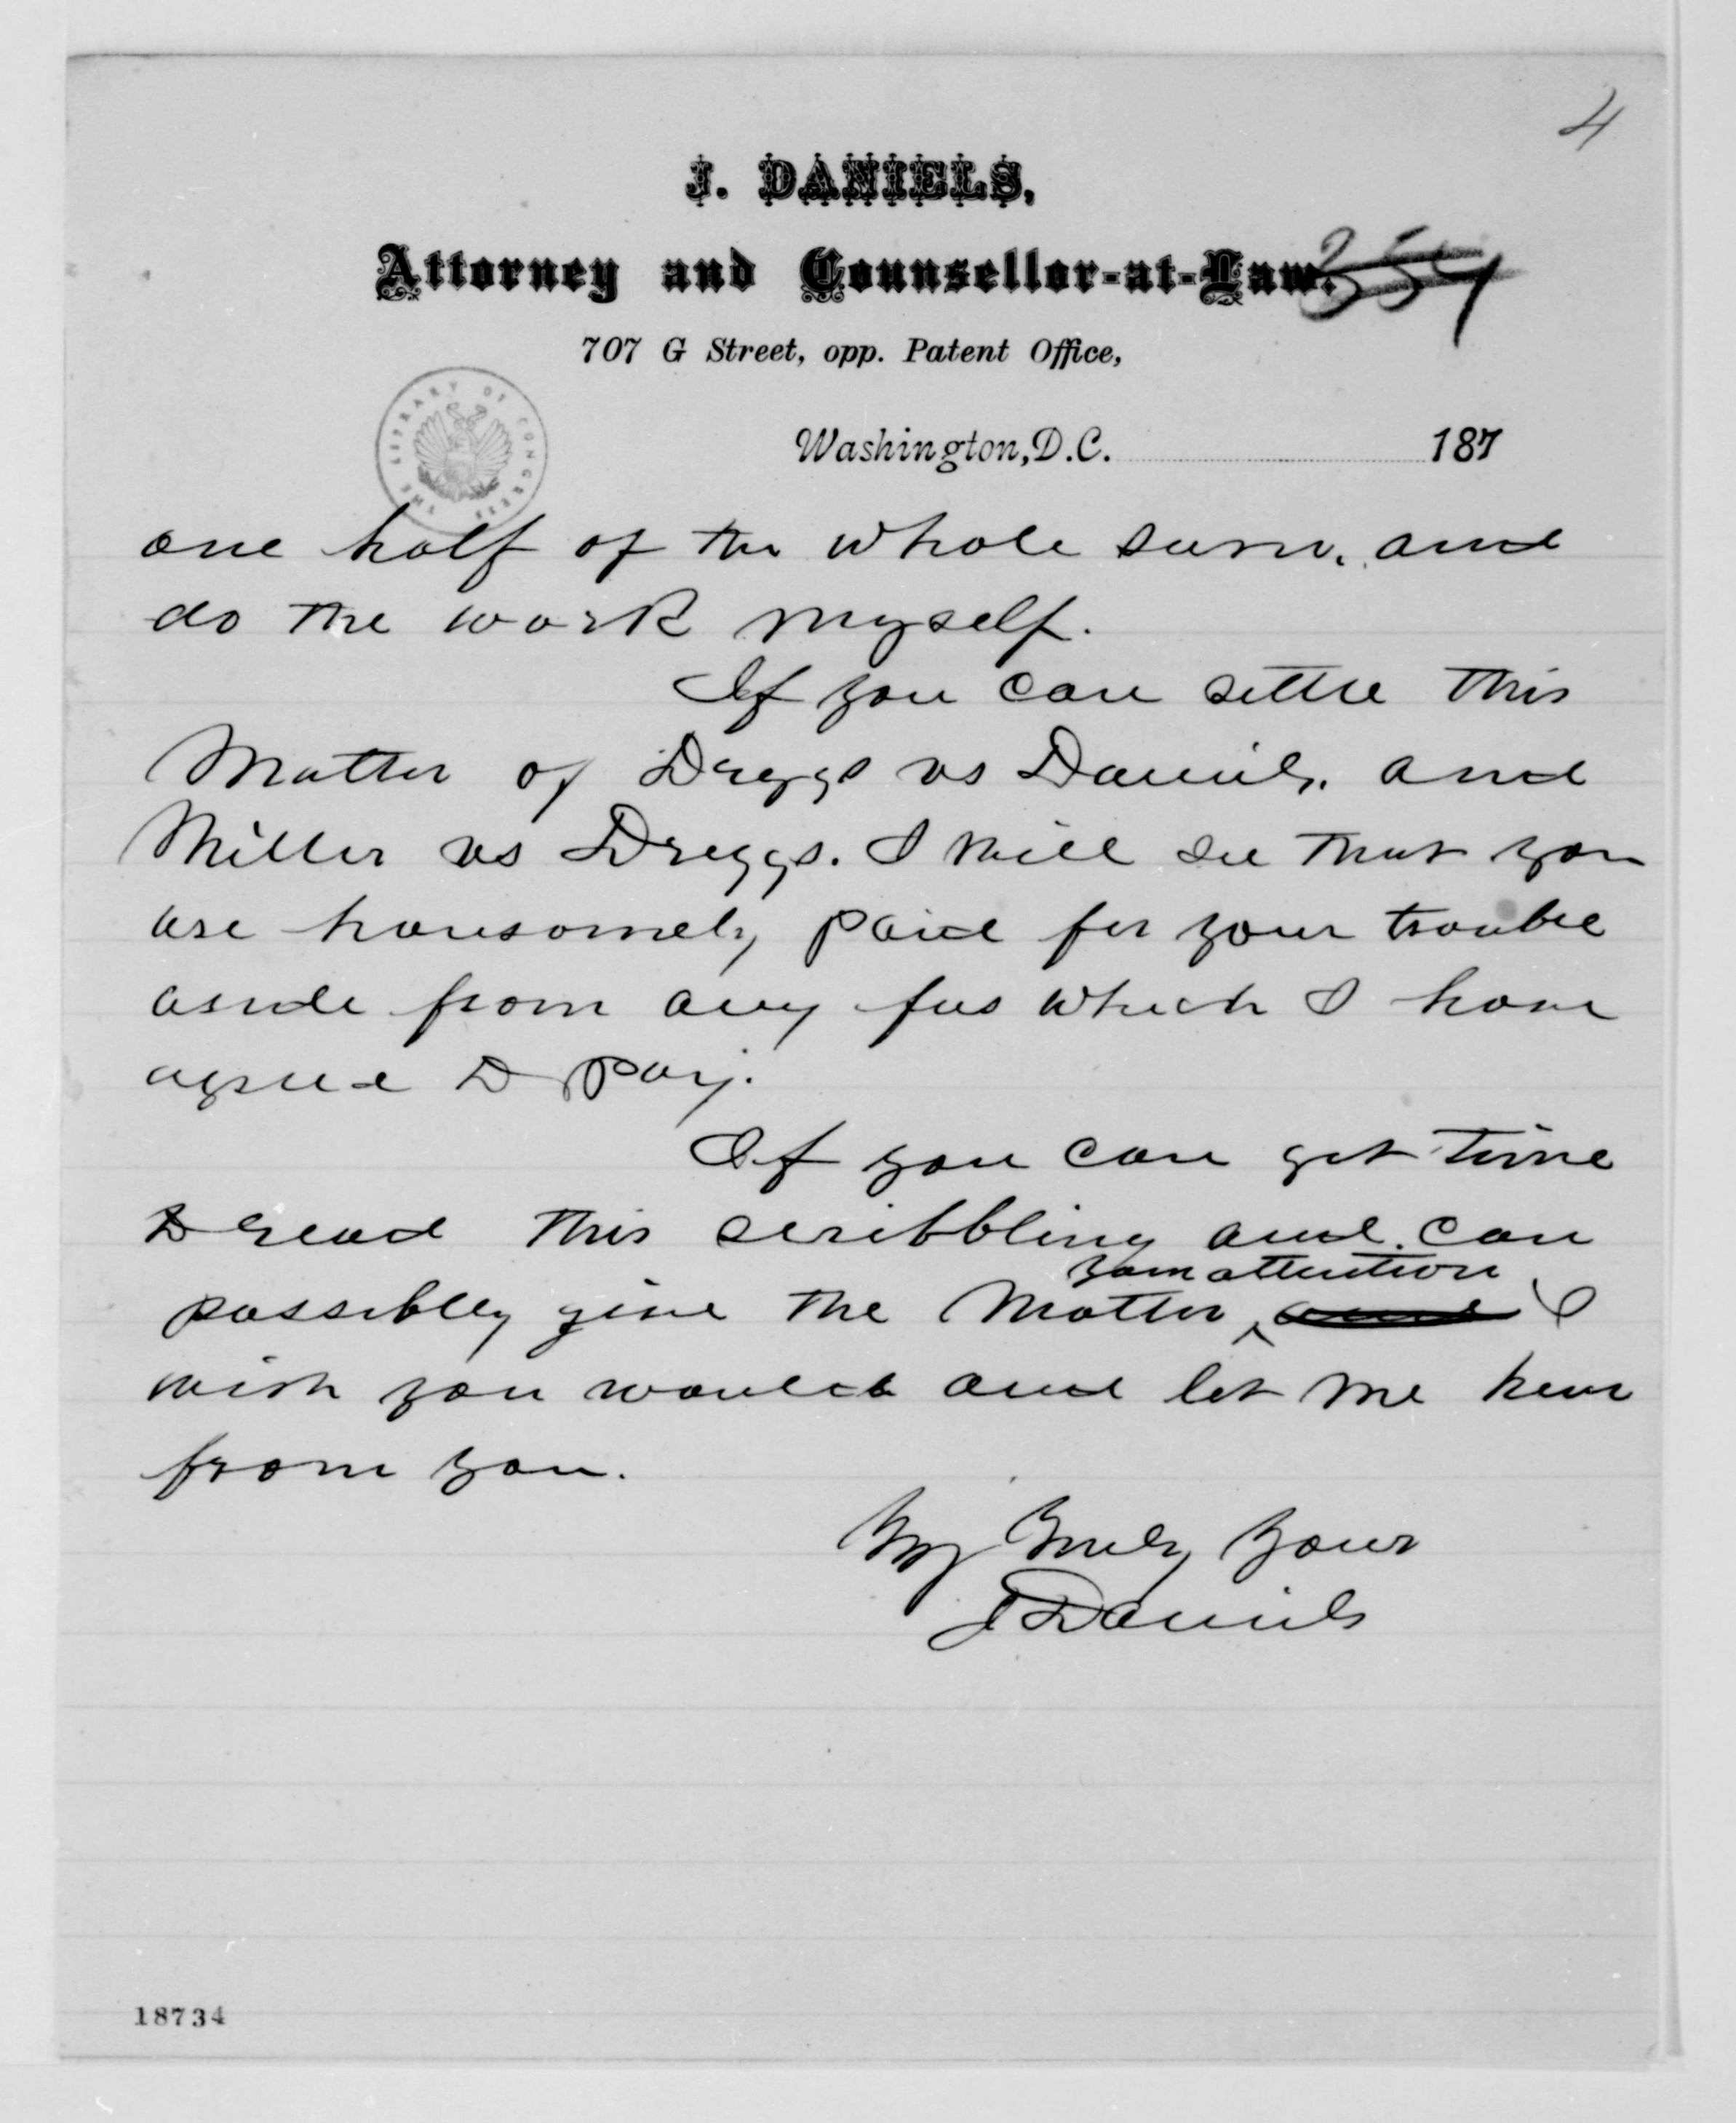 4
J. DANIELS,
Attorney and Counsellor-at-Law.
354
707 G Street, opp. Patent Office,
THE LIBRARY OF CONGRESS
Washington, D.C. 187
one half of the whole sum, and
do the work myself.
If you can settle this
Matter of Dreggs vs Daniels, and
Miller vs Dreggs. I will see that you
are hansomely paid for your trouble
aside from any fees which I have
agreed to pay.
If you can get time
to read this scribbling and can
your attention
possibley give the Matter, and I
wish you would and let me hear
from you.
Very Truly Yours
J Daniels
18734